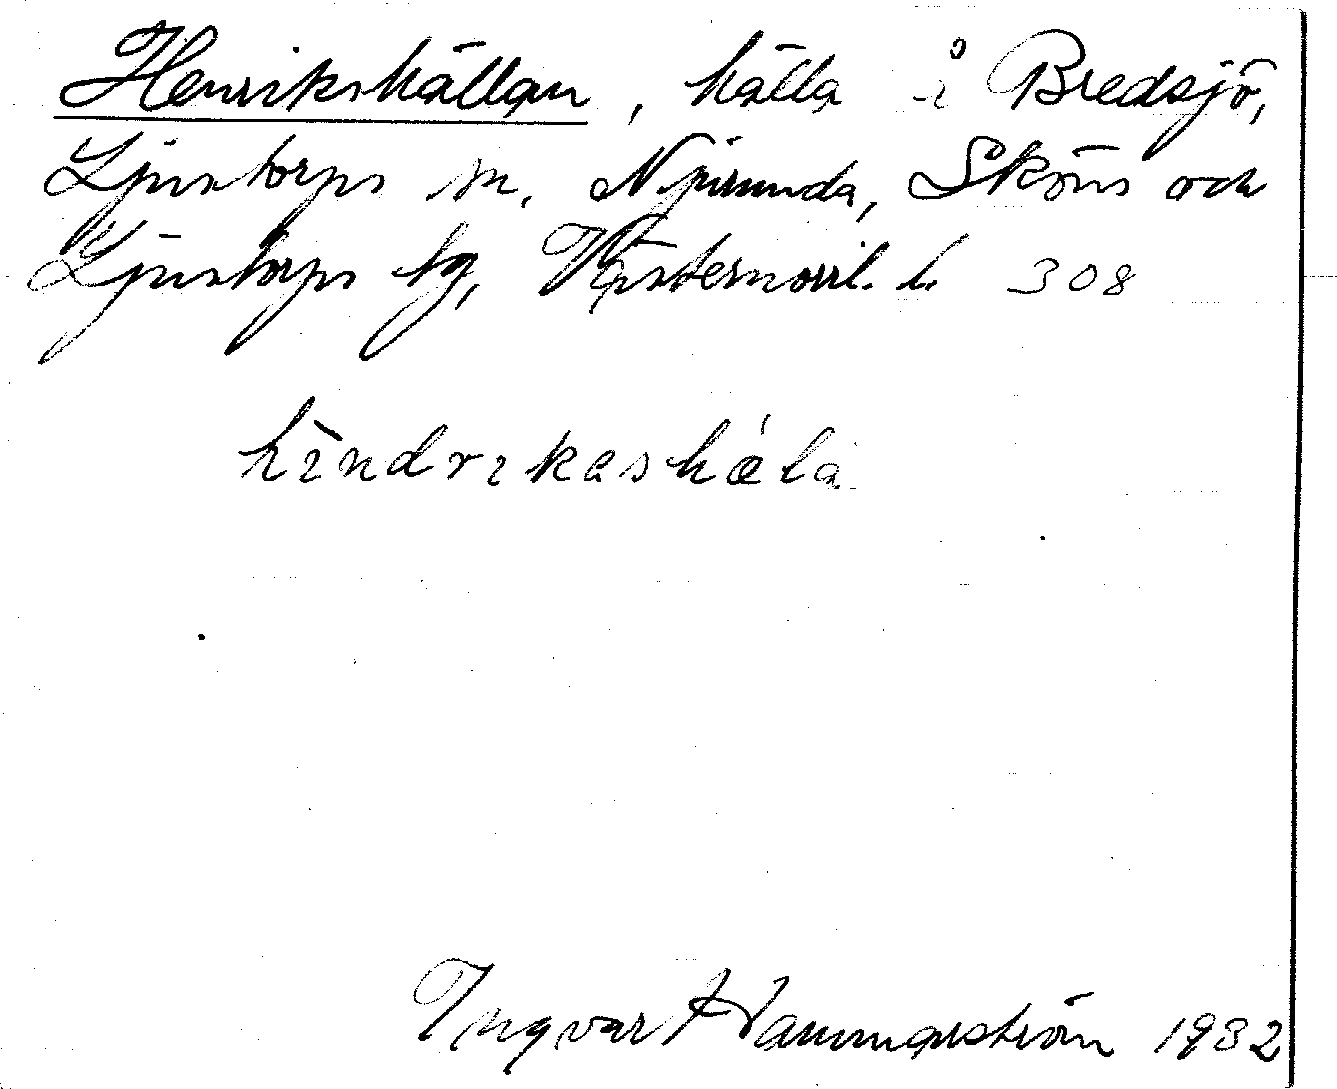 Henrikskällan, källa i Bredsjö,
Ljustorps sn. Njurunda, Sköns och
Ljustorps tg, Västernorrl. l. 308
hindrikeskæla
Ingvar Hammarström 1932